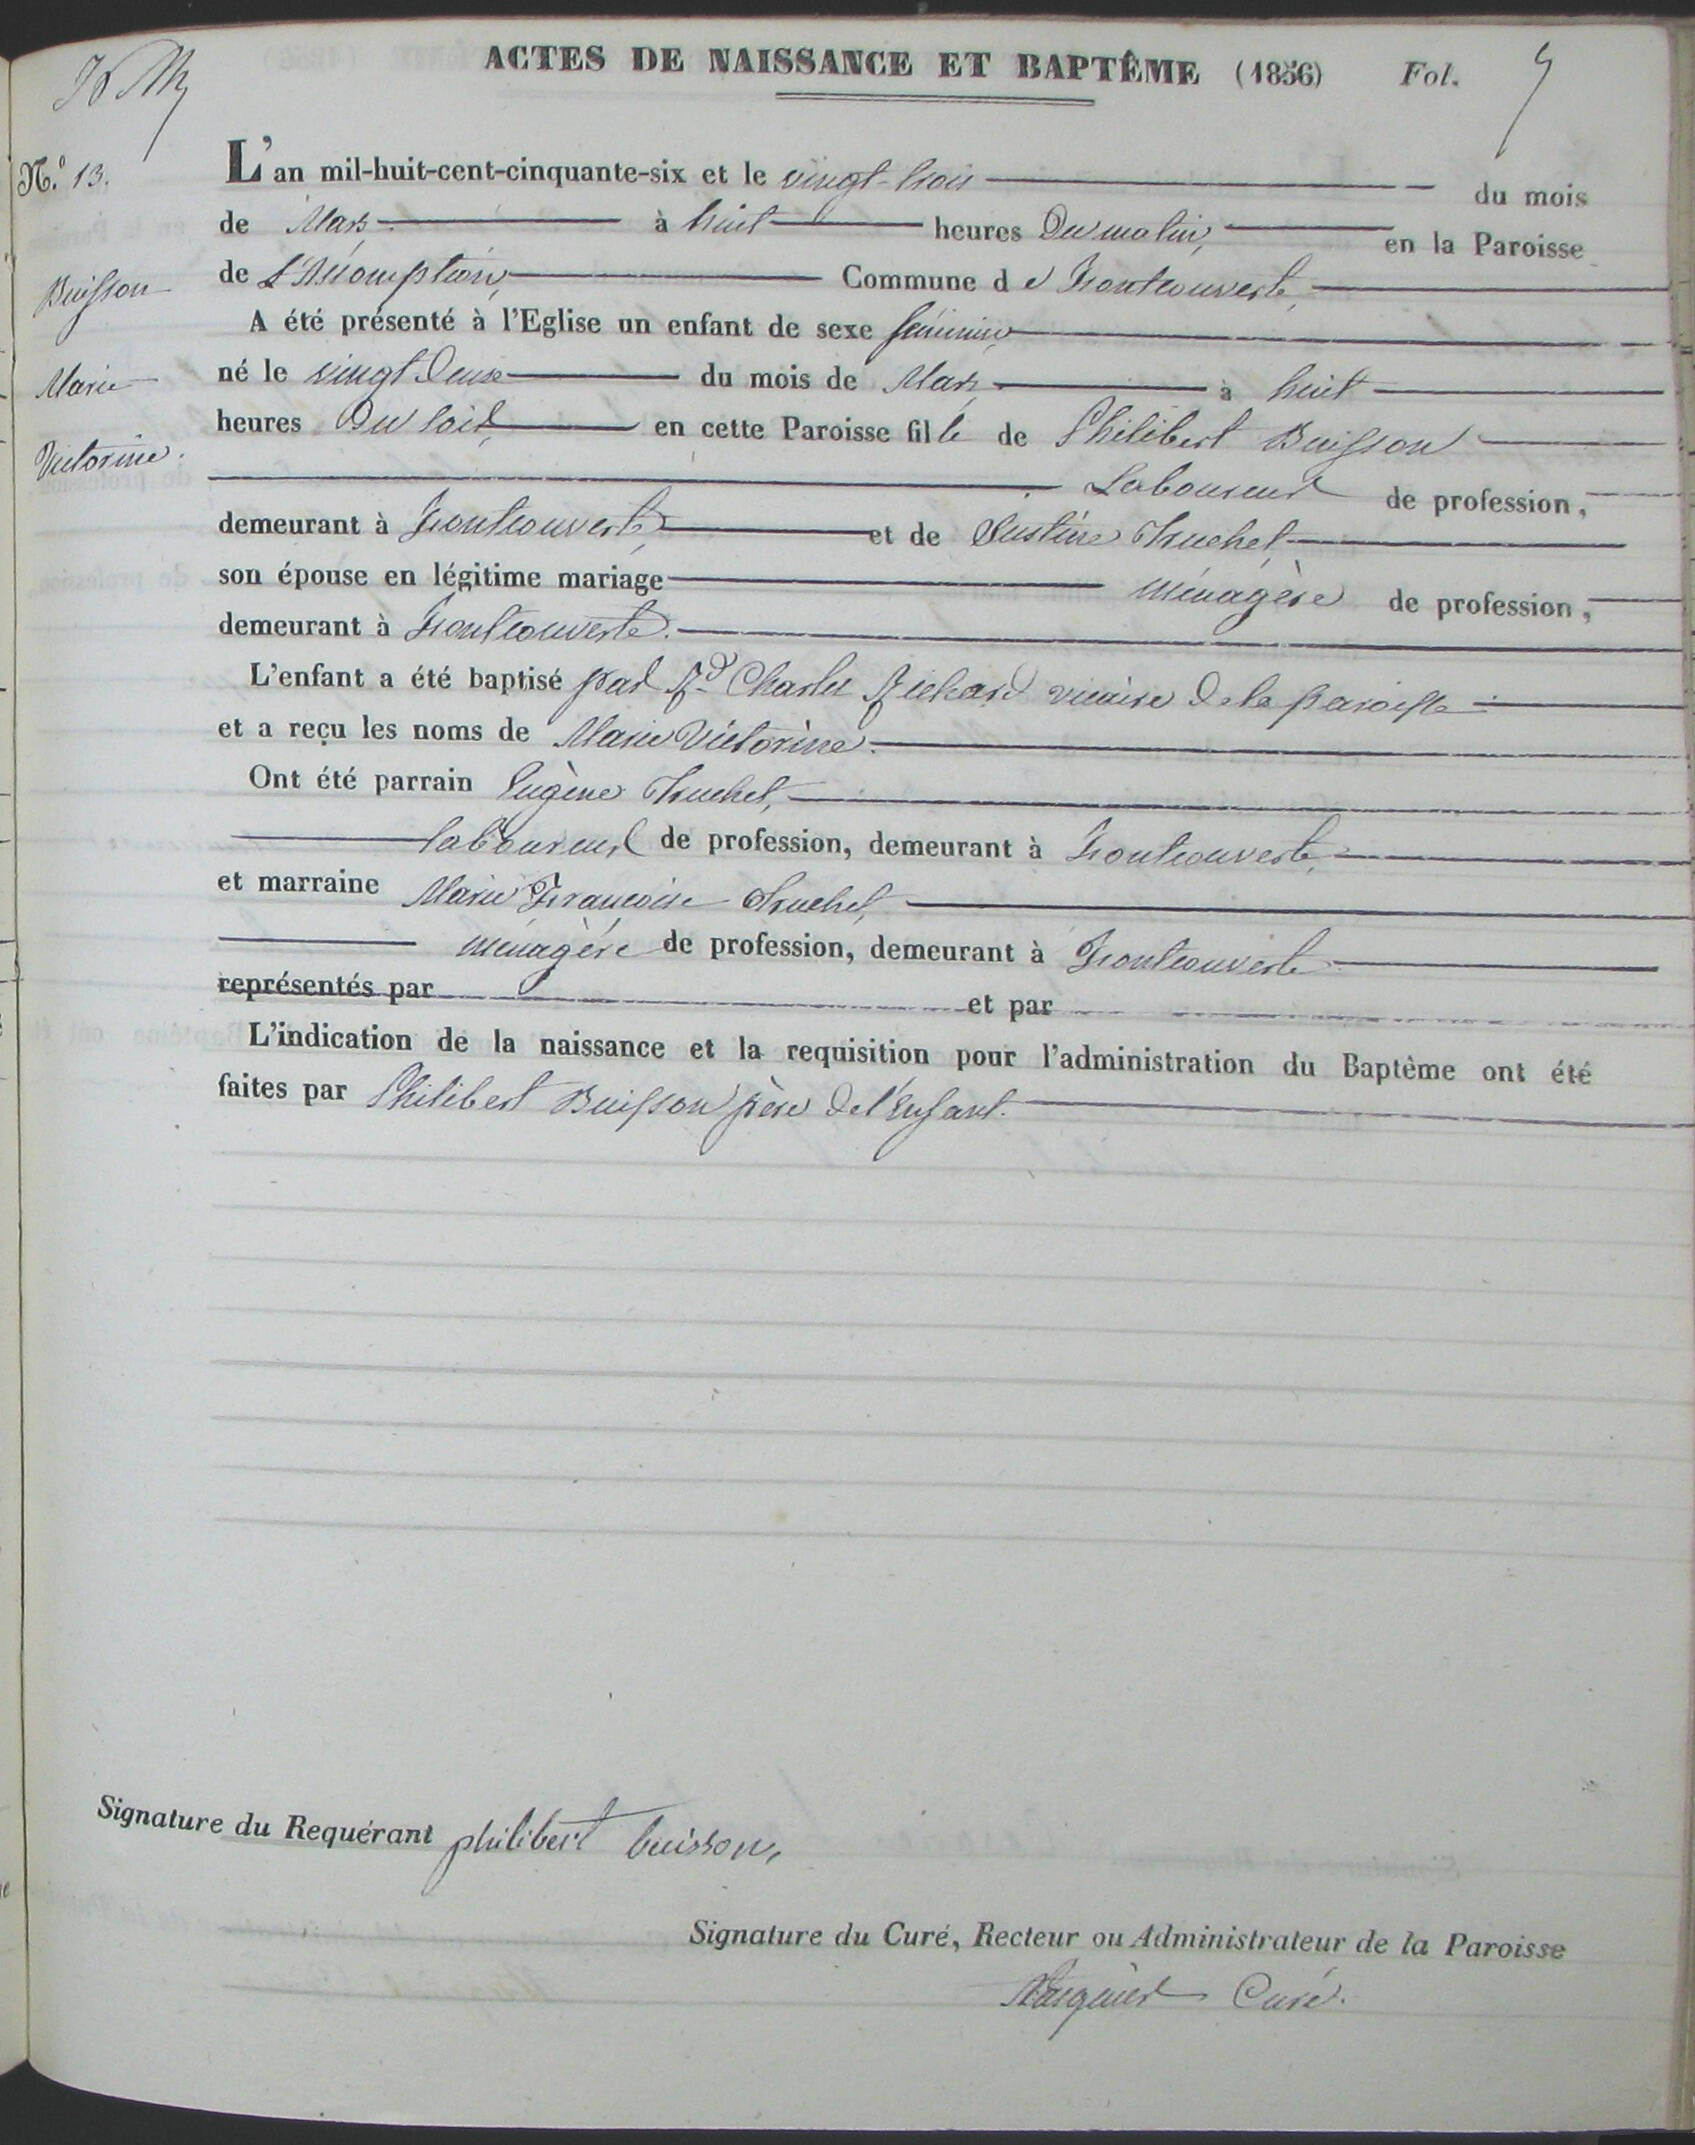 ACTES DE NAISSANCE ET BAPTÊME (1856) Fol. 5
N.º 13.
Buisson
Marie
Victorine.
L'an mil-huit-cent-cinquante-six et le vingt-trois du mois
de Mars à huit heures du matin, en la Paroisse
de L'Assomption, Commune de Fontcouverte,
A été présenté à l'Eglise un enfant de sexe féminin,
né le vingt deux du mois de Mars, à huit
heures Du soir, en cette Paroisse fille de Philibert Buisson
Laboureur de profession,
demeurant à Fontcouverte, et de Justine Truchet
son épouse en légitime mariage ménagère de profession,
demeurant à Fontcouverte.
L'enfant a été baptisé par Rd Charles Richard vicaire de la paroisse
et a reçu les noms de Marie Victorine.
Ont été parrain Eugène Truchet,
laboureur de profession, demeurant à Fontcouverte,
et marraine Marie Françoise Truchet,
ménagère de profession, demeurant à Fontcouverte
représentés par et par
L'indication de la naissance et la requisition pour l'administration du Baptème ont été
faites par Philibert Buisson père de l'enfant.
Signature du Requérant philibert buisson,
Signature du Curé, Recteur ou Administrateur de la Paroisse
Curé.